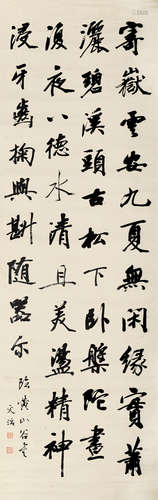 寄嶽雲安九夏無閑緣實蕭
灑碧溪頭古松下臥槃陀晝
復夜八德水清且美盪精神
浸牙齒掬與斟隨器尓
臨黃山谷書
文治